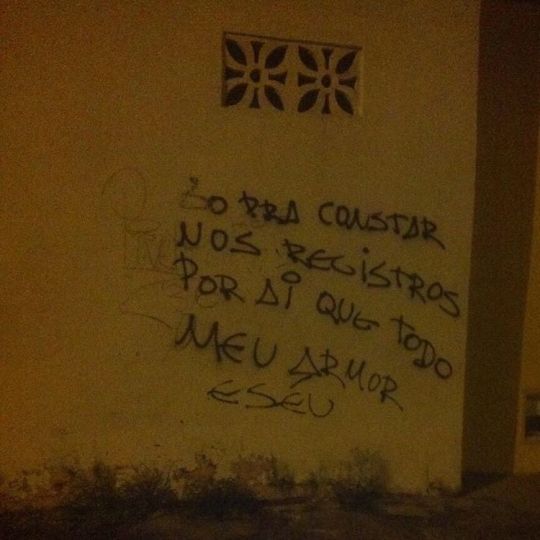 SO PRA CONSTAR
NOS REGISTROS
POR AI QUE TODO
MEU ARMOR
E SEU